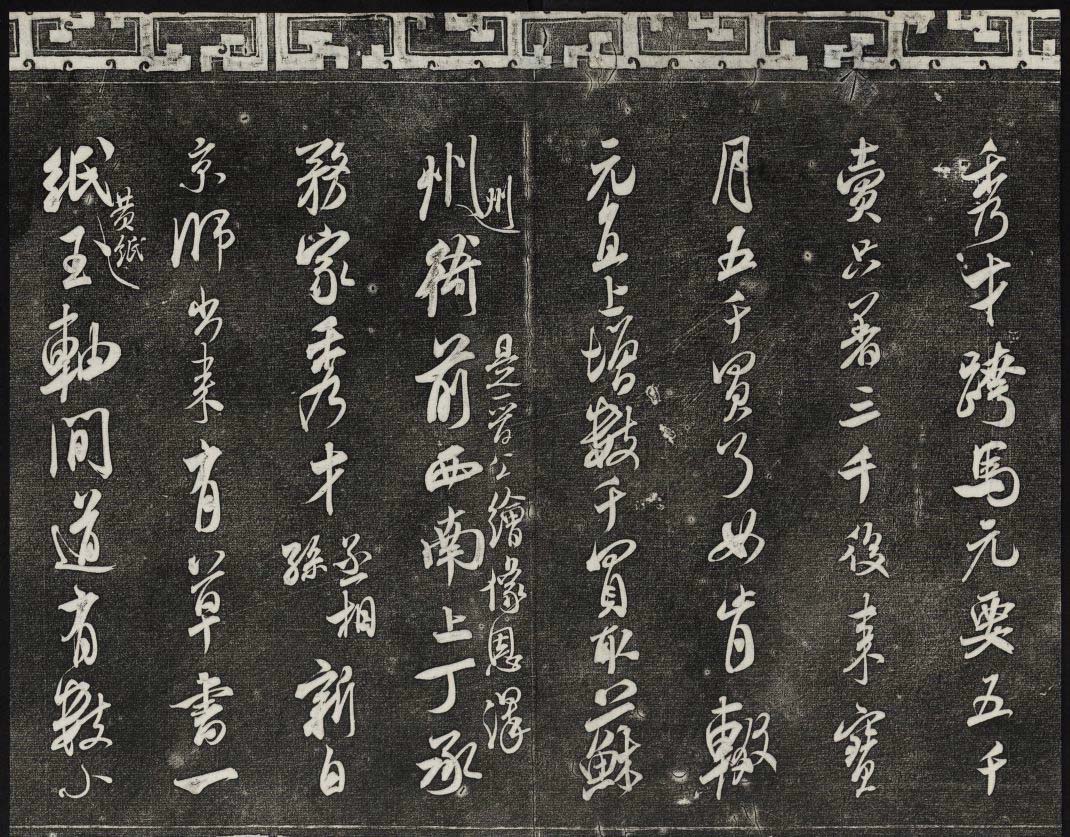 秀才跨馬元要五千
賣只著三千後来寶
月五千買了如肯輟
元直上增數千買取蘇
州州衙前西南上丁承
是一繪像恩澤
務家秀才丞相孫新自
京師出来有草書一
紙黄紙玉軸間道有數小